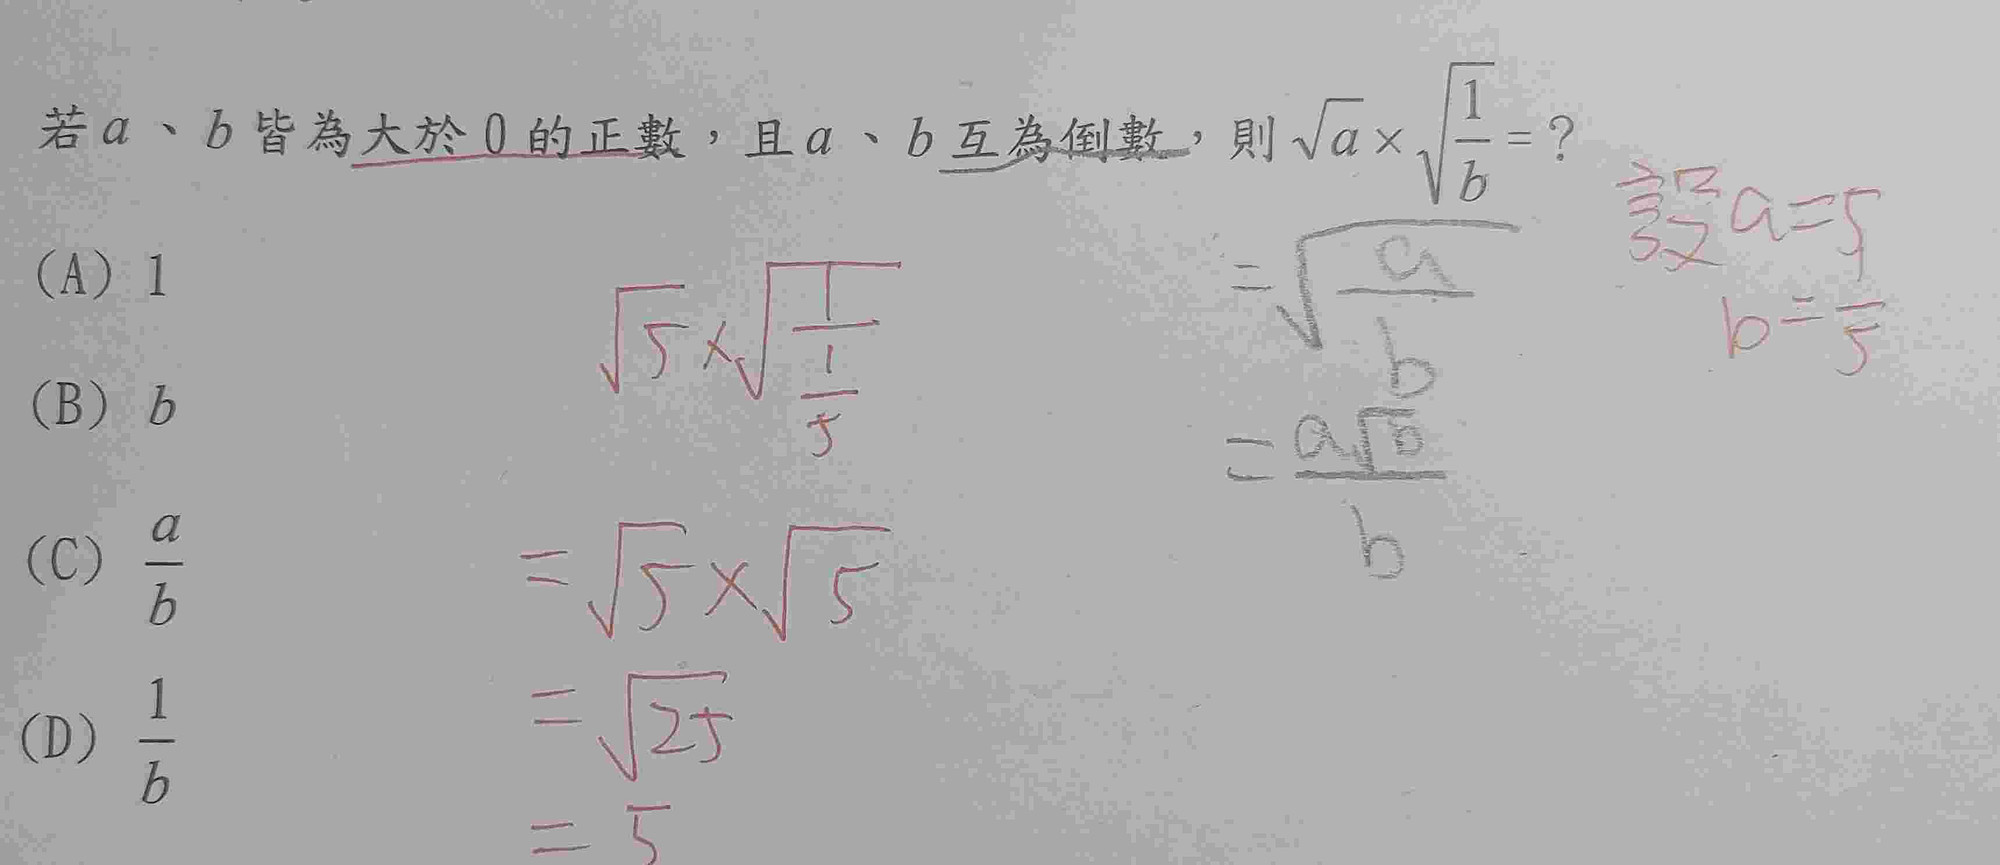 若 a、b 皆為大於 0 的正數，且 a、b 互為倒數，則 √a × √(1/b) = ?
(A) 1
(B) b
(C) a/b
(D) 1/b
設 a = 5
b = 1/5
= √(a/b)
√5 × √(1/(1/5))
= √5 × √5
= √25
= 5